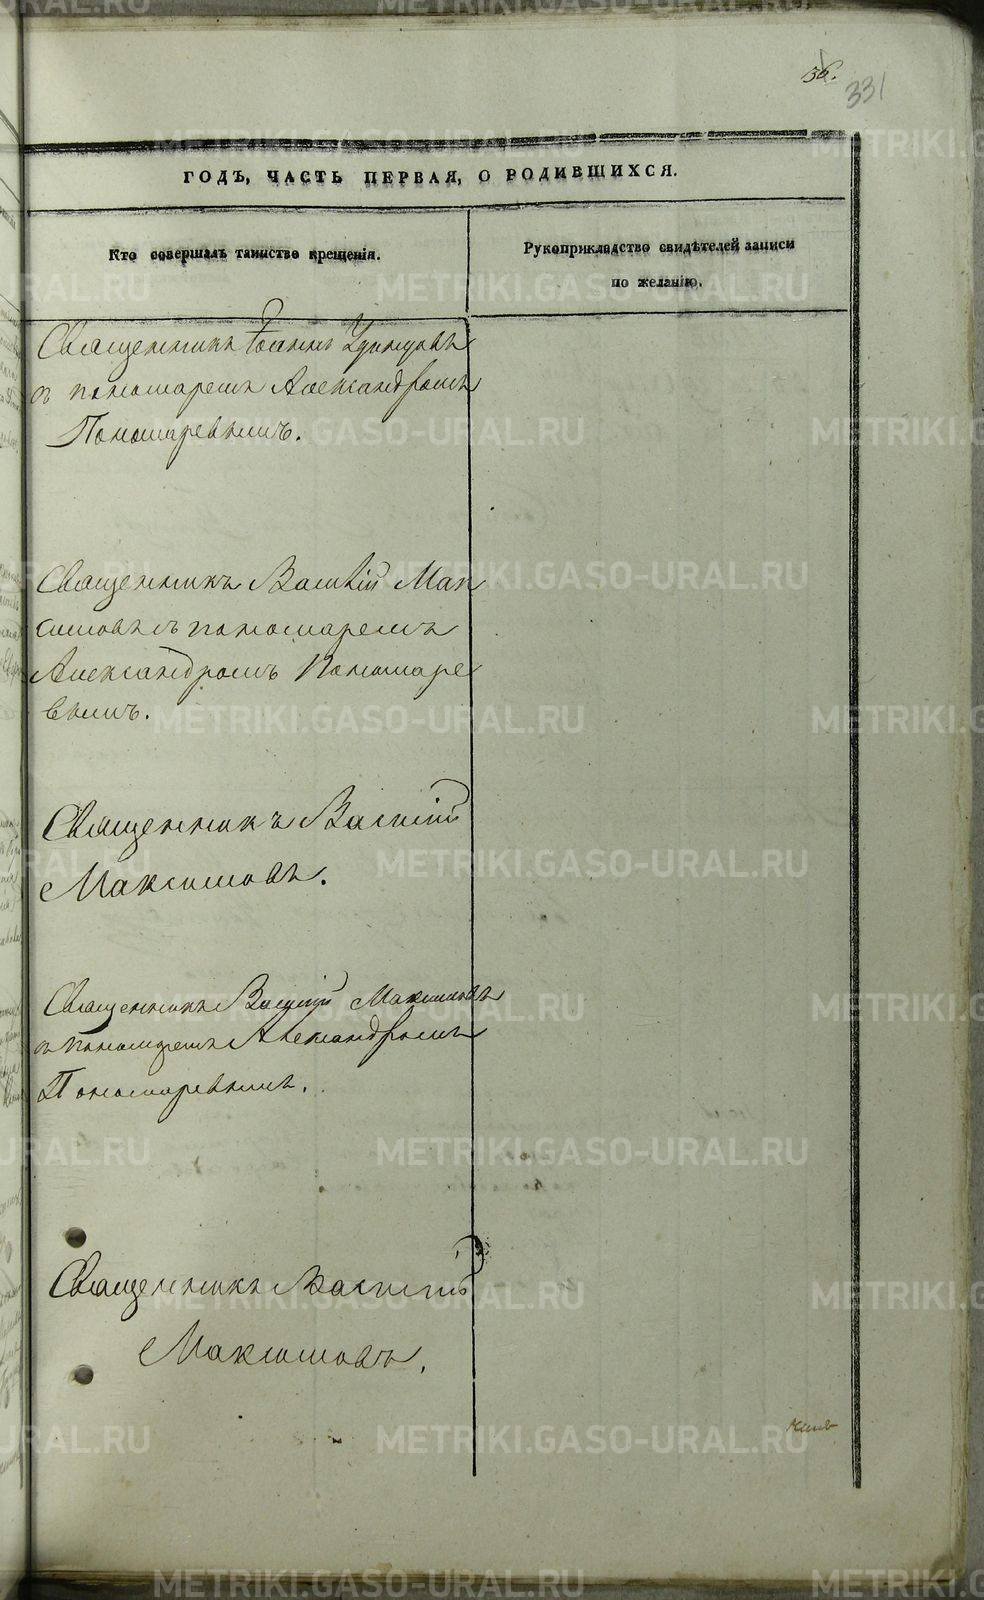 36.
331
ГОДЪ, ЧАСТЬ ПЕРВАЯ, О РОДИВШИХСЯ.
Кто совершалъ таинство крещенія.
Рукоприкладство свидѣтелей записи
по желанію.
Священникъ Іоаннъ
съ пономаремъ Александромъ
Пономаревымъ.
Священникъ Василій Мак
симовъ съ пономаремъ
Александромъ Пономаре
вымъ.
Священникъ Василій
Максимовъ.
Священникъ Василій Максимовъ
съ пономаремъ Александромъ
Пономаревымъ.
Священникъ Василій
Максимовъ.
METRIKI.GASO-URAL.RU